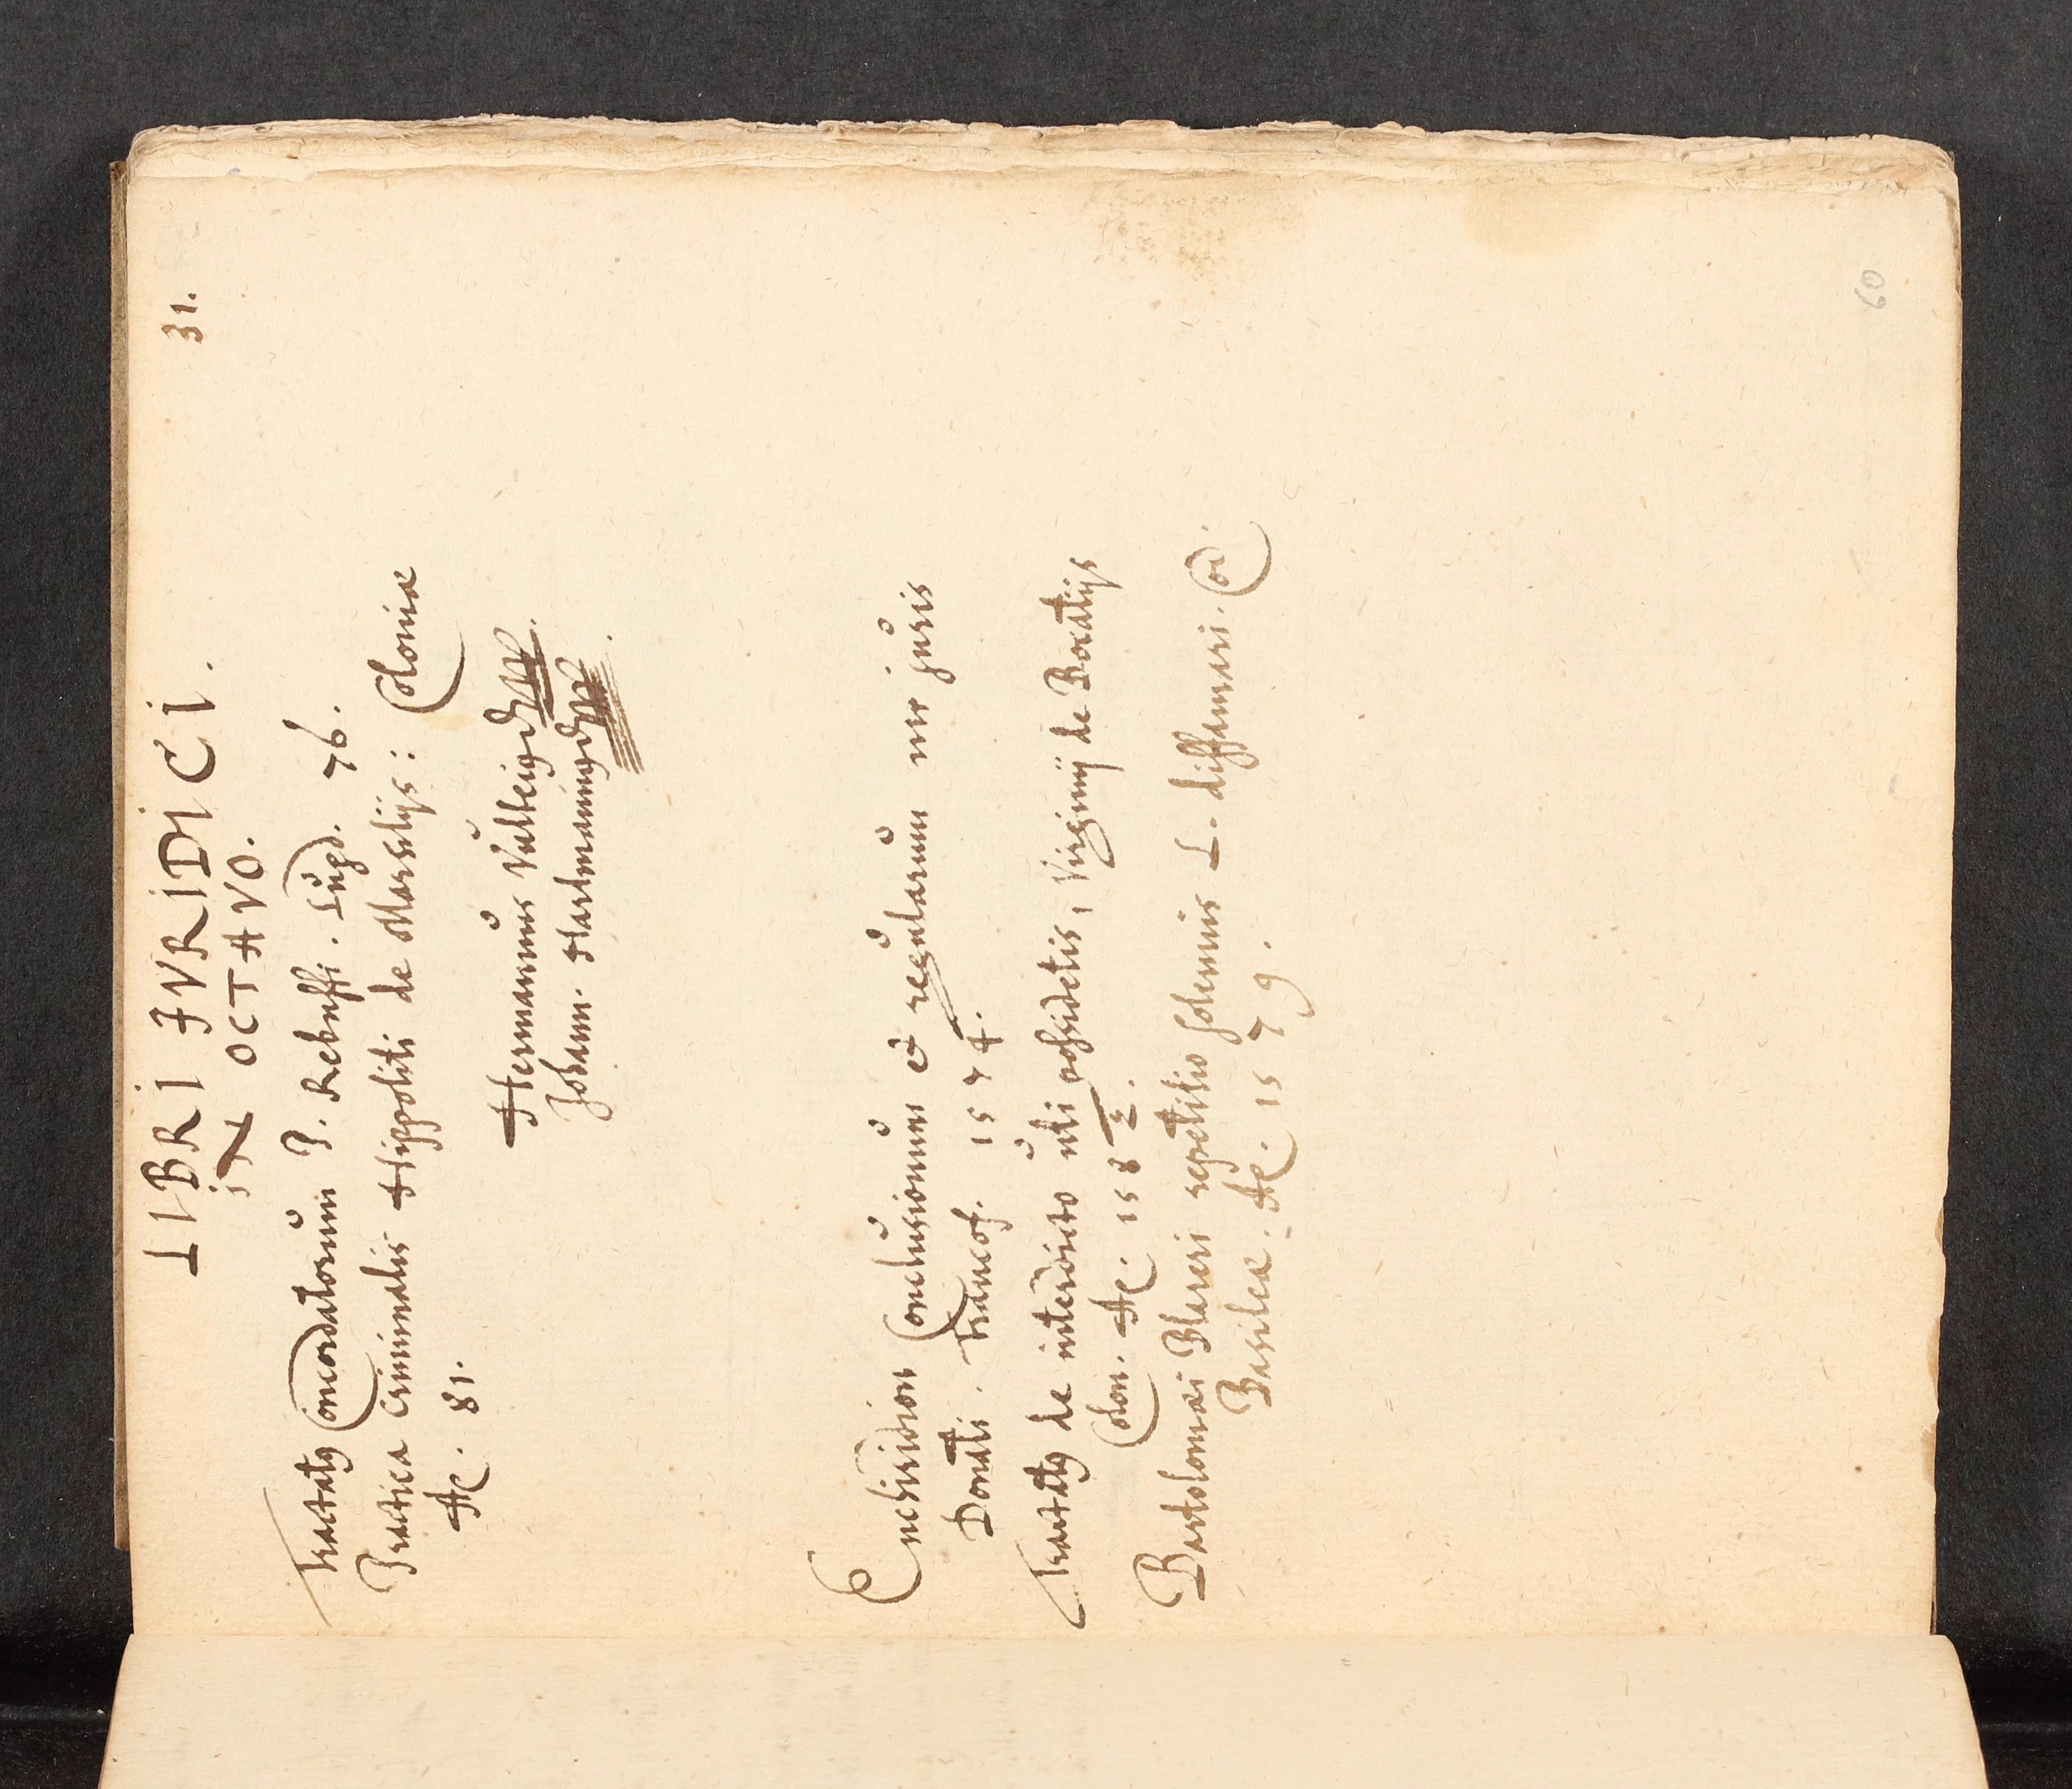 LIBRI IVRIDICI. 31.
IN OCTAVO.
Tractatus Concordatorum P. Rebuffi. Lugd. 76.
Practica Criminalis Hippoliti de Marsilijs: Coloniæ
Ac. 81.
Hermannus Vulteius
Johann. Hartmannus
Enchiridion Conclusionum et regularum utr juris
Donati. Francof. 1574.
Tractatus de interdicto uti possidetis, Virginij de Bocatijs
Colon. Ac. 1582.
Bartolomæi Blareri repetitio solennis L. diffamari. Cod.
Basileæ. Ac. 1579.
60